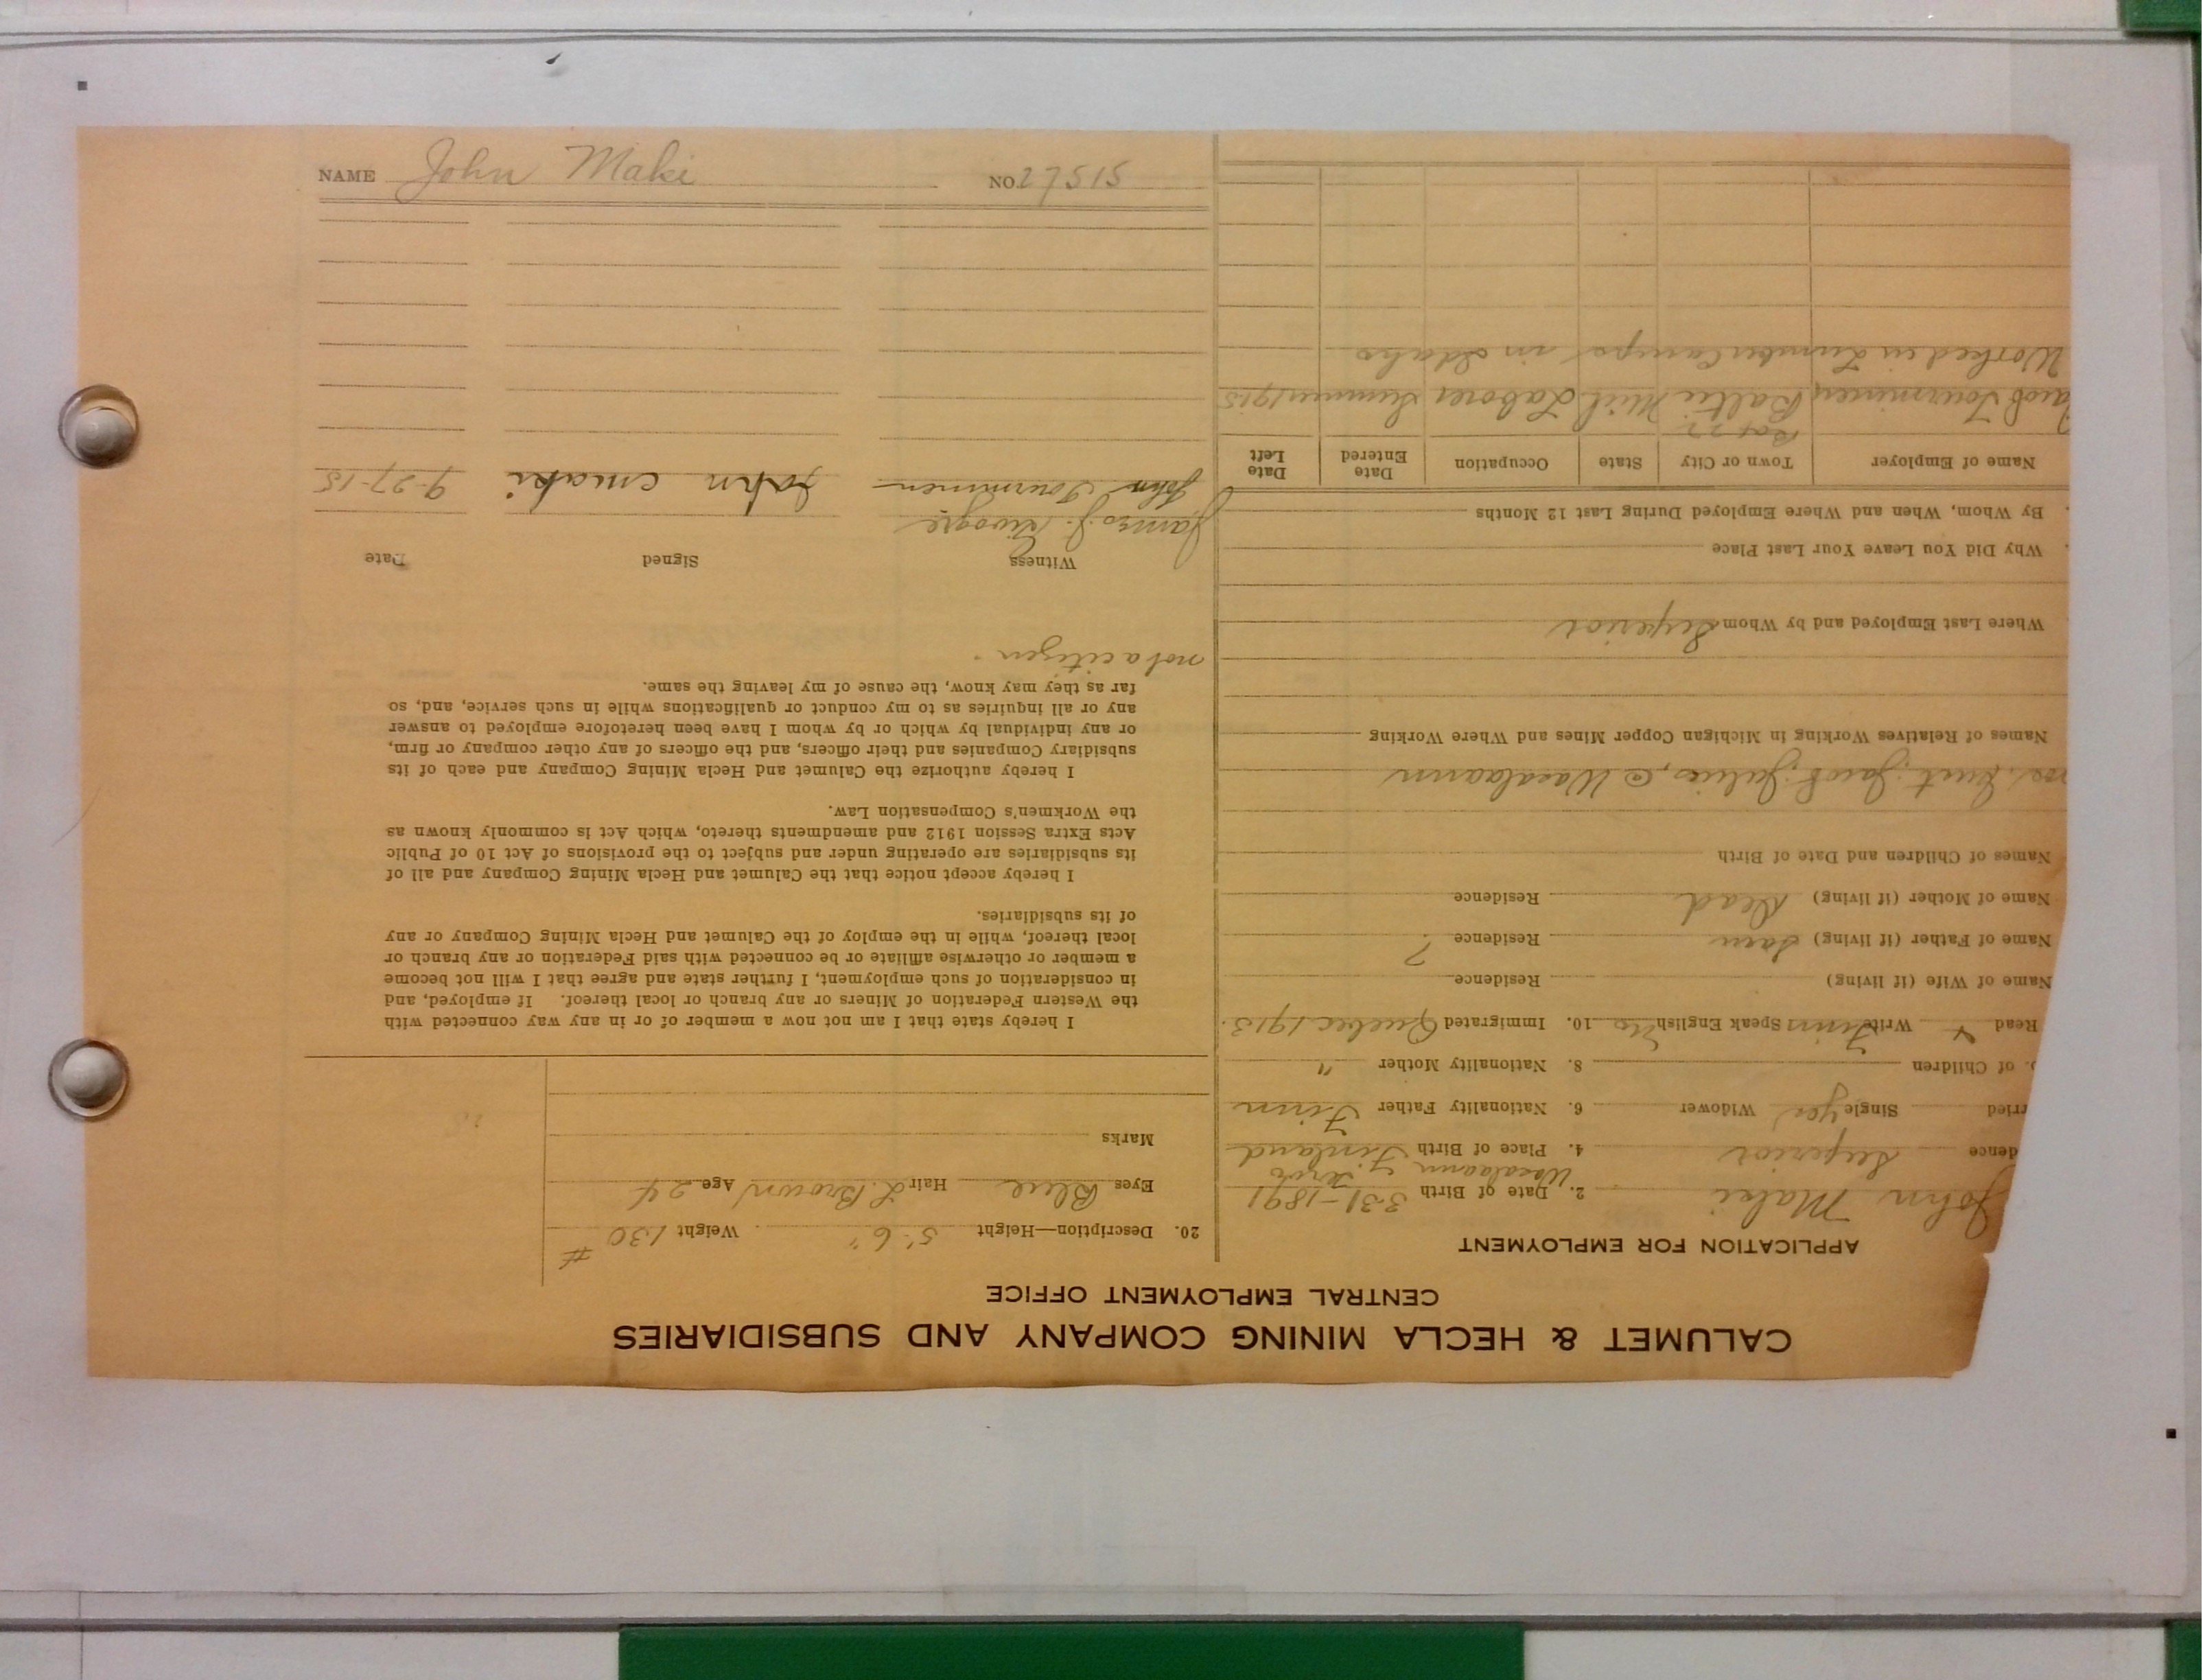 CALUMET & HECLA MINING COMPANY AND SUBSIDIARIES
CENTRAL EMPLOYMENT OFFICE
APPLICATION FOR EMPLOYMENT
John Maki 2. Date of Birth 3-31-1891
dence Superior 4. Place of Birth Finland
rried Single yes Widower 6. Nationality Father Finn
of Children 8. Nationality Mother "
Read Write Finn Speak English No 10. Immigrated Quebec 1913.
Name of Wife (if living) Residence
Name of Father (if living) Sam Residence ?
Name of Mother (if living) Dead Residence
Names of Children and Date of Birth
Jacob, Julius, @ Waasa
Names of Relatives Working in Michigan Copper Mines and Where Working
Where Last Employed and by Whom Superior
Why Did You Leave Your Last Place
By Whom, When and Where Employed During Last 12 Months
Name of Employer Town or City State Occupation Date Entered Date Left
Box 22
Jacob Tourminen Baltic Mich Laborer Summer 1915
Worked in Lumber Camps in Idaho
20. Description—Height 5'-6" Weight 130 #
Eyes Blue Hair L. Brown Age 24
Marks
I hereby state that I am not now a member of or in any way connected with
the Western Federation of Miners or any branch or local thereof. If employed, and
in consideration of such employment, I further state and agree that I will not become
a member or otherwise affiliate or be connected with said Federation or any branch or
local thereof, while in the employ of the Calumet and Hecla Mining Company or any
of its subsidiaries.
I hereby accept notice that the Calumet and Hecla Mining Company and all of
its subsidiaries are operating under and subject to the provisions of Act 10 of Public
Acts Extra Session 1912 and amendments thereto, which Act is commonly known as
the Workmen's Compensation Law.
I hereby authorize the Calumet and Hecla Mining Company and each of its
subsidiary Companies and their officers, and the officers of any other company or firm,
or any individual by which or by whom I have been heretofore employed to answer
any or all inquiries as to my conduct or qualifications while in such service, and, so
far as they may know, the cause of my leaving the same.
not a citizen.
Witness Signed Date
James J.
John Tourminen John Maki 9-27-15
NAME John Maki NO. 27515